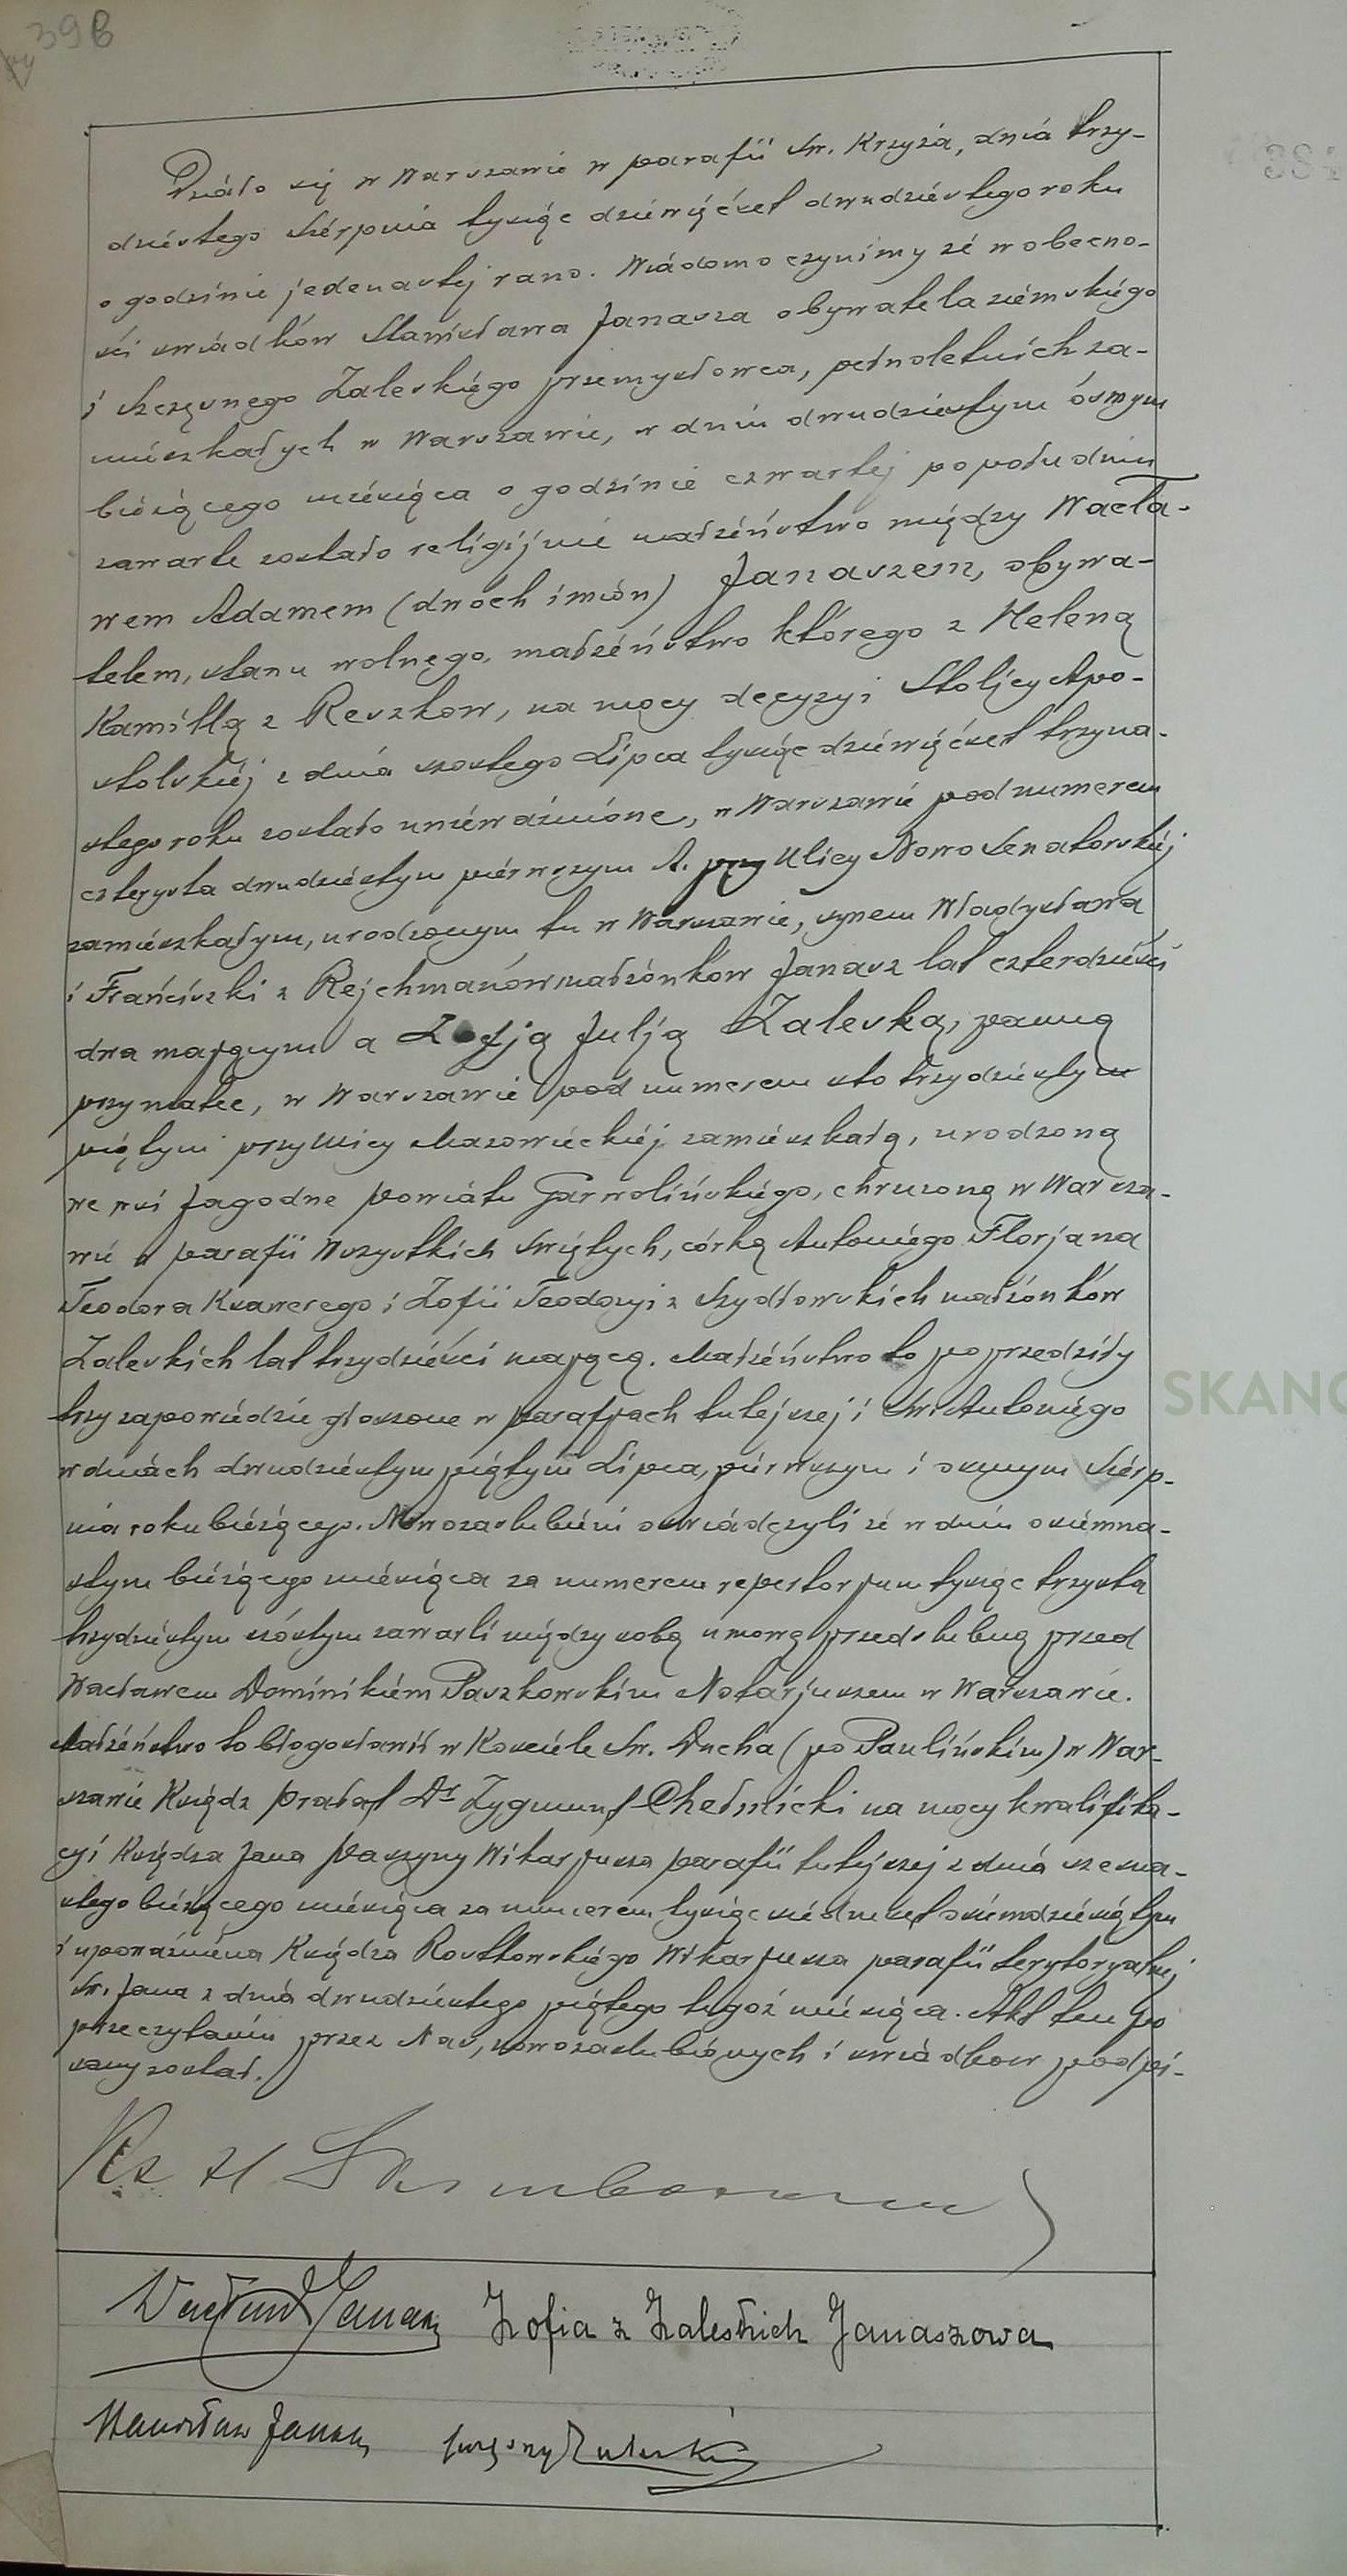 398
Działo się w Warszawie w parafii Św. Krzyża, dnia trzy-
dziestego Sierpnia tysiąc dziewięćset dwudziestego roku
o godzinie jedenastej rano. Wiadomo czynimy że w obecno-
ści świadków Stanisława Janasza obywatela ziemskiego
i Szczęsnego Zaleskiego przemysłowca, pełnoletnich za-
mieszkałych w Warszawie, w dniu dwudziestym ósmym
bieżącego miesiąca o godzinie czwartej po południu
zawarte zostało religijnie małżeństwo między Wacła-
wem Adamem (dwóch imion) Janaszem, obywa-
telem, stanu wolnego, małżeństwo którego z Heleną
Kamillą z Reszków, na mocy decyzyi Stolicy Apo-
stolskiej z dnia szóstego Lipca tysiąc dziewięćset trzyna-
stego roku zostało unieważnione, w Warszawie pod numerem
czterysta dwudziestym pierwszym A. przy Ulicy Nowo Senatorskiej
zamieszkałym, urodzonym tu w Warszawie, synem Władysława
i Franciszki z Rejchmanów małżonków Janasz lat czterdzieści
dwa mającym a Zofją Julją Zaleską, panną
przy matce, w Warszawie pod numerem sto trzydziestym
piątym przy Ulicy Mazowieckiej zamieszkałą, urodzoną
we wsi Jagodne powiatu Garwolińskiego, chrzczoną w Warsza-
wie w parafii Wszystkich Świętych, córką Antoniego Florjana
Teodora Ksawerego i Zofii Teodozyi z Szydłowskich małżonków
Zaleskich lat trzydzieści mającą. Małżeństwo to poprzedziły
trzy zapowiedzie głoszone w parafjach tutejszej i Św. Antoniego
w dniach dwudziestym piątym Lipca, pierwszym i ósmym Sierp-
nia roku bieżącego. Nowozaślubieni oświadczyli że w dniu osiemna-
stym bieżącego miesiąca za numerem repertorjum tysiąc trzysta
trzydziestym szóstym zawarli między sobą umowę przedślubną przed
Wacławem Dominikiem Paszkowskim Notarjuszem w Warszawie.
Małżeństwo to błogosławił w Kościele Św. Ducha (po Paulińskim) w War-
szawie Ksiądz Prałat Dr Zygmunt Chełmicki na mocy kwalifika-
cyi Księdza Jana Paszyny Wikarjusza parafii tutejszej z dnia szesna-
stego bieżącego miesiąca za numerem tysiąc siedmset osiemdziesiątym
i upoważnienia Księdza Rostkowskiego Wikarjusza parafii terytoryalnej
Św. Jana z dnia dwudziestego piątego tegoż miesiąca. Akt ten po
przeczytaniu przez Nas, nowozaślubionych i świadków podpi-
sany został.
Ks
Wacław Janasz Zofia z Zaleskich Janaszowa
Stanisław Janasz Szczęsny Zaleski
SKANO